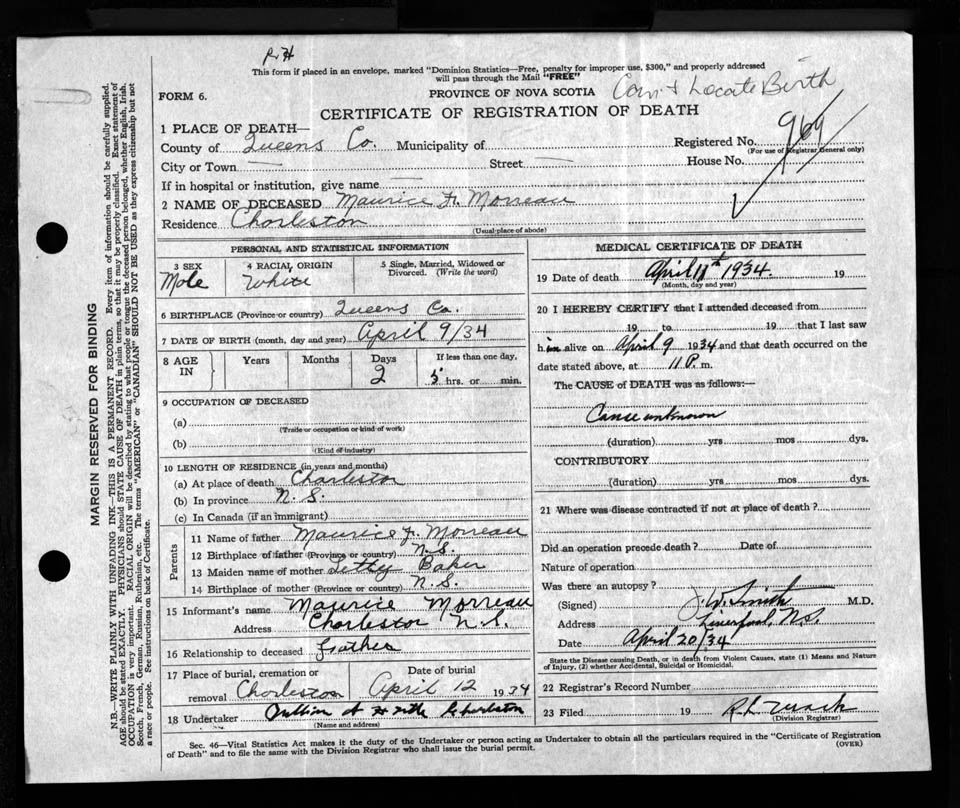 R H
This form if placed in an envelope, marked "Dominion Statistics—Free, penalty for improper use, $300," and properly addressed
will pass through the Mail "FREE"
FORM 6.
PROVINCE OF NOVA SCOTIA
Can't Locate Birth
CERTIFICATE OF REGISTRATION OF DEATH
1 PLACE OF DEATH—
County of Queens Co. Municipality of
Registered No. 969
(For use of Registrar General only)
City or Town — Street — House No.
If in hospital or institution, give name —
2 NAME OF DECEASED Maurice Fr. Morreau
Residence Charleston
(Usual place of abode)
PERSONAL AND STATISTICAL INFORMATION
3 SEX
Male
4 RACIAL ORIGIN
White
5 Single, Married, Widowed or
Divorced. (Write the word)
6 BIRTHPLACE (Province or country) Queens Co.
7 DATE OF BIRTH (month, day and year) April 9/34
8 AGE
IN
Years
Months
Days
2
If less than one day,
5 hrs. or min.
9 OCCUPATION OF DECEASED
(a)
(Trade or occupation or kind of work)
(b)
(Kind of industry)
10 LENGTH OF RESIDENCE (in years and months)
(a) At place of death Charleston
(b) In province N. S.
(c) In Canada (if an immigrant)
Parents
11 Name of father Maurice Fr. Morreau
12 Birthplace of father (Province or country) N.S.
13 Maiden name of mother Letty Baker
14 Birthplace of mother (Province or country) N.S.
15 Informant's name Maurice Morreau
Address Charleston N.S.
16 Relationship to deceased father
17 Place of burial, cremation or
removal Charleston
Date of burial
April 12 1934
18 Undertaker Charleston
(Name and address)
MEDICAL CERTIFICATE OF DEATH
19 Date of death April 11th 1934. 19
(Month, day and year)
20 I HEREBY CERTIFY that I attended deceased from
19 to 19 that I last saw
him alive on April 9 1934 and that death occurred on the
date stated above, at 11 P. m.
The CAUSE of DEATH was as follows:—
Cause unknown
(duration) yrs mos dys.
CONTRIBUTORY
(duration) yrs mos dys.
21 Where was disease contracted if not at place of death?
Did an operation precede death? Date of
Nature of operation
Was there an autopsy?
(Signed) J. W. Smith M.D.
Address Liverpool, N.S.
Date April 20/34
State the Disease causing Death, or in death from Violent Causes, state (1) Means and Nature
of Injury, (2) whether Accidental, Suicidal or Homicidal.
22 Registrar's Record Number
23 Filed 19
(Division Registrar)
Sec. 46—Vital Statistics Act makes it the duty of the Undertaker or person acting as Undertaker to obtain all the particulars required in the "Certificate of Registration
of Death" and to file the same with the Division Registrar who shall issue the burial permit.
(OVER)
MARGIN RESERVED FOR BINDING
N.B.—WRITE PLAINLY WITH UNFADING INK—THIS IS A PERMANENT RECORD. Every item of information should be carefully supplied.
AGE should be stated EXACTLY. PHYSICIANS should STATE CAUSE OF DEATH in plain terms, so that it may be properly classified. Exact statement of
OCCUPATION is very important. RACIAL ORIGIN will be described by stating to what people or tongue the deceased person belonged, whether English, Irish,
Scotch, French, German, Russian, Ruthenian, etc. The terms "AMERICAN" or "CANADIAN" SHOULD NOT BE USED as they express citizenship but not
a race or people. See instructions on back of Certificate.